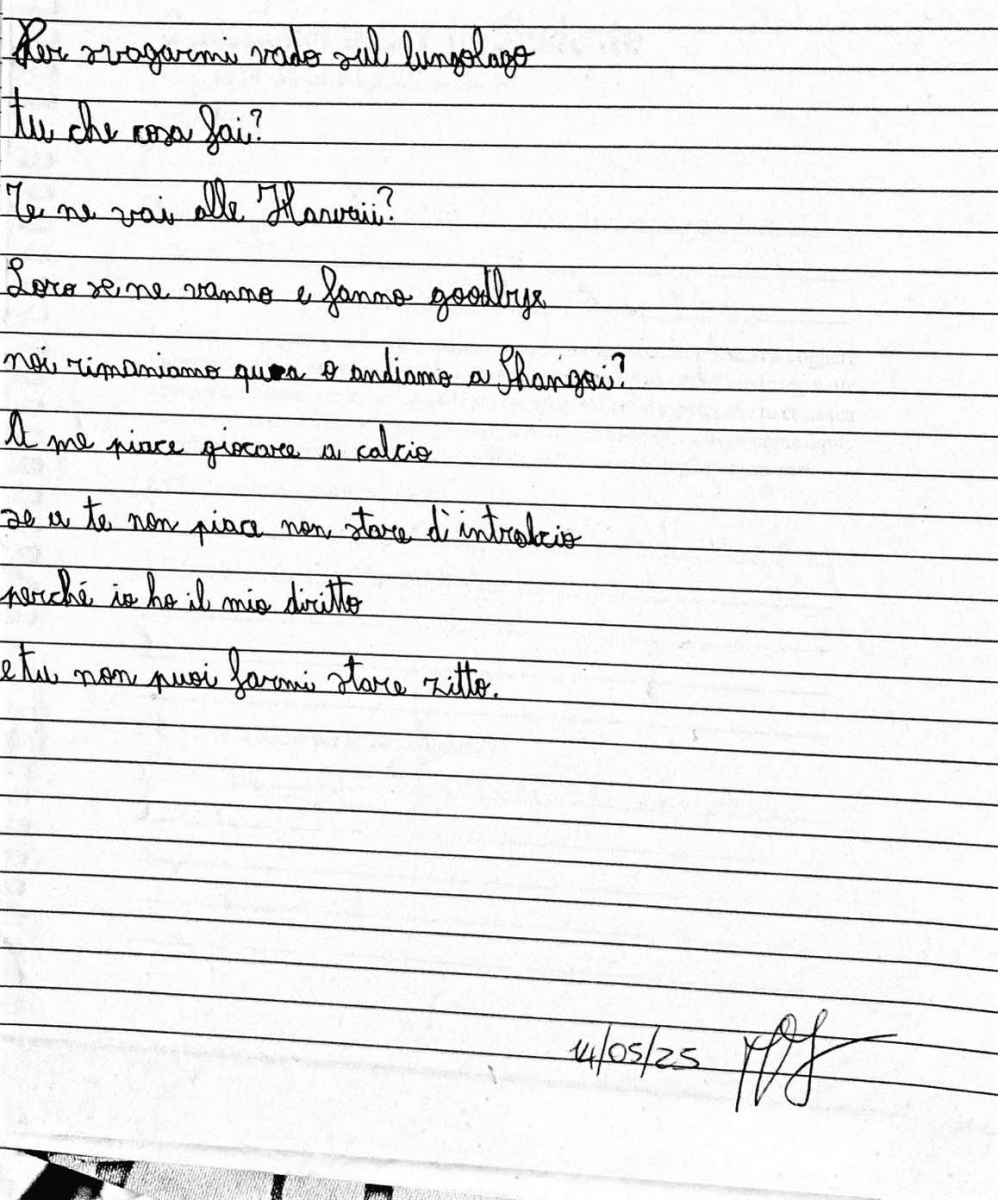 Per svagarmi vado sul lungolago
tu che cosa fai?
Te ne vai alle Hawaii?
Loro se ne vanno e fanno goodbye
noi rimaniamo qua o andiamo a Shangai?
A me piace giocare a calcio
se a te non piace non stare d'intralcio
perché io ho il mio diritto
e tu non puoi farmi stare zitto.
14/05/25